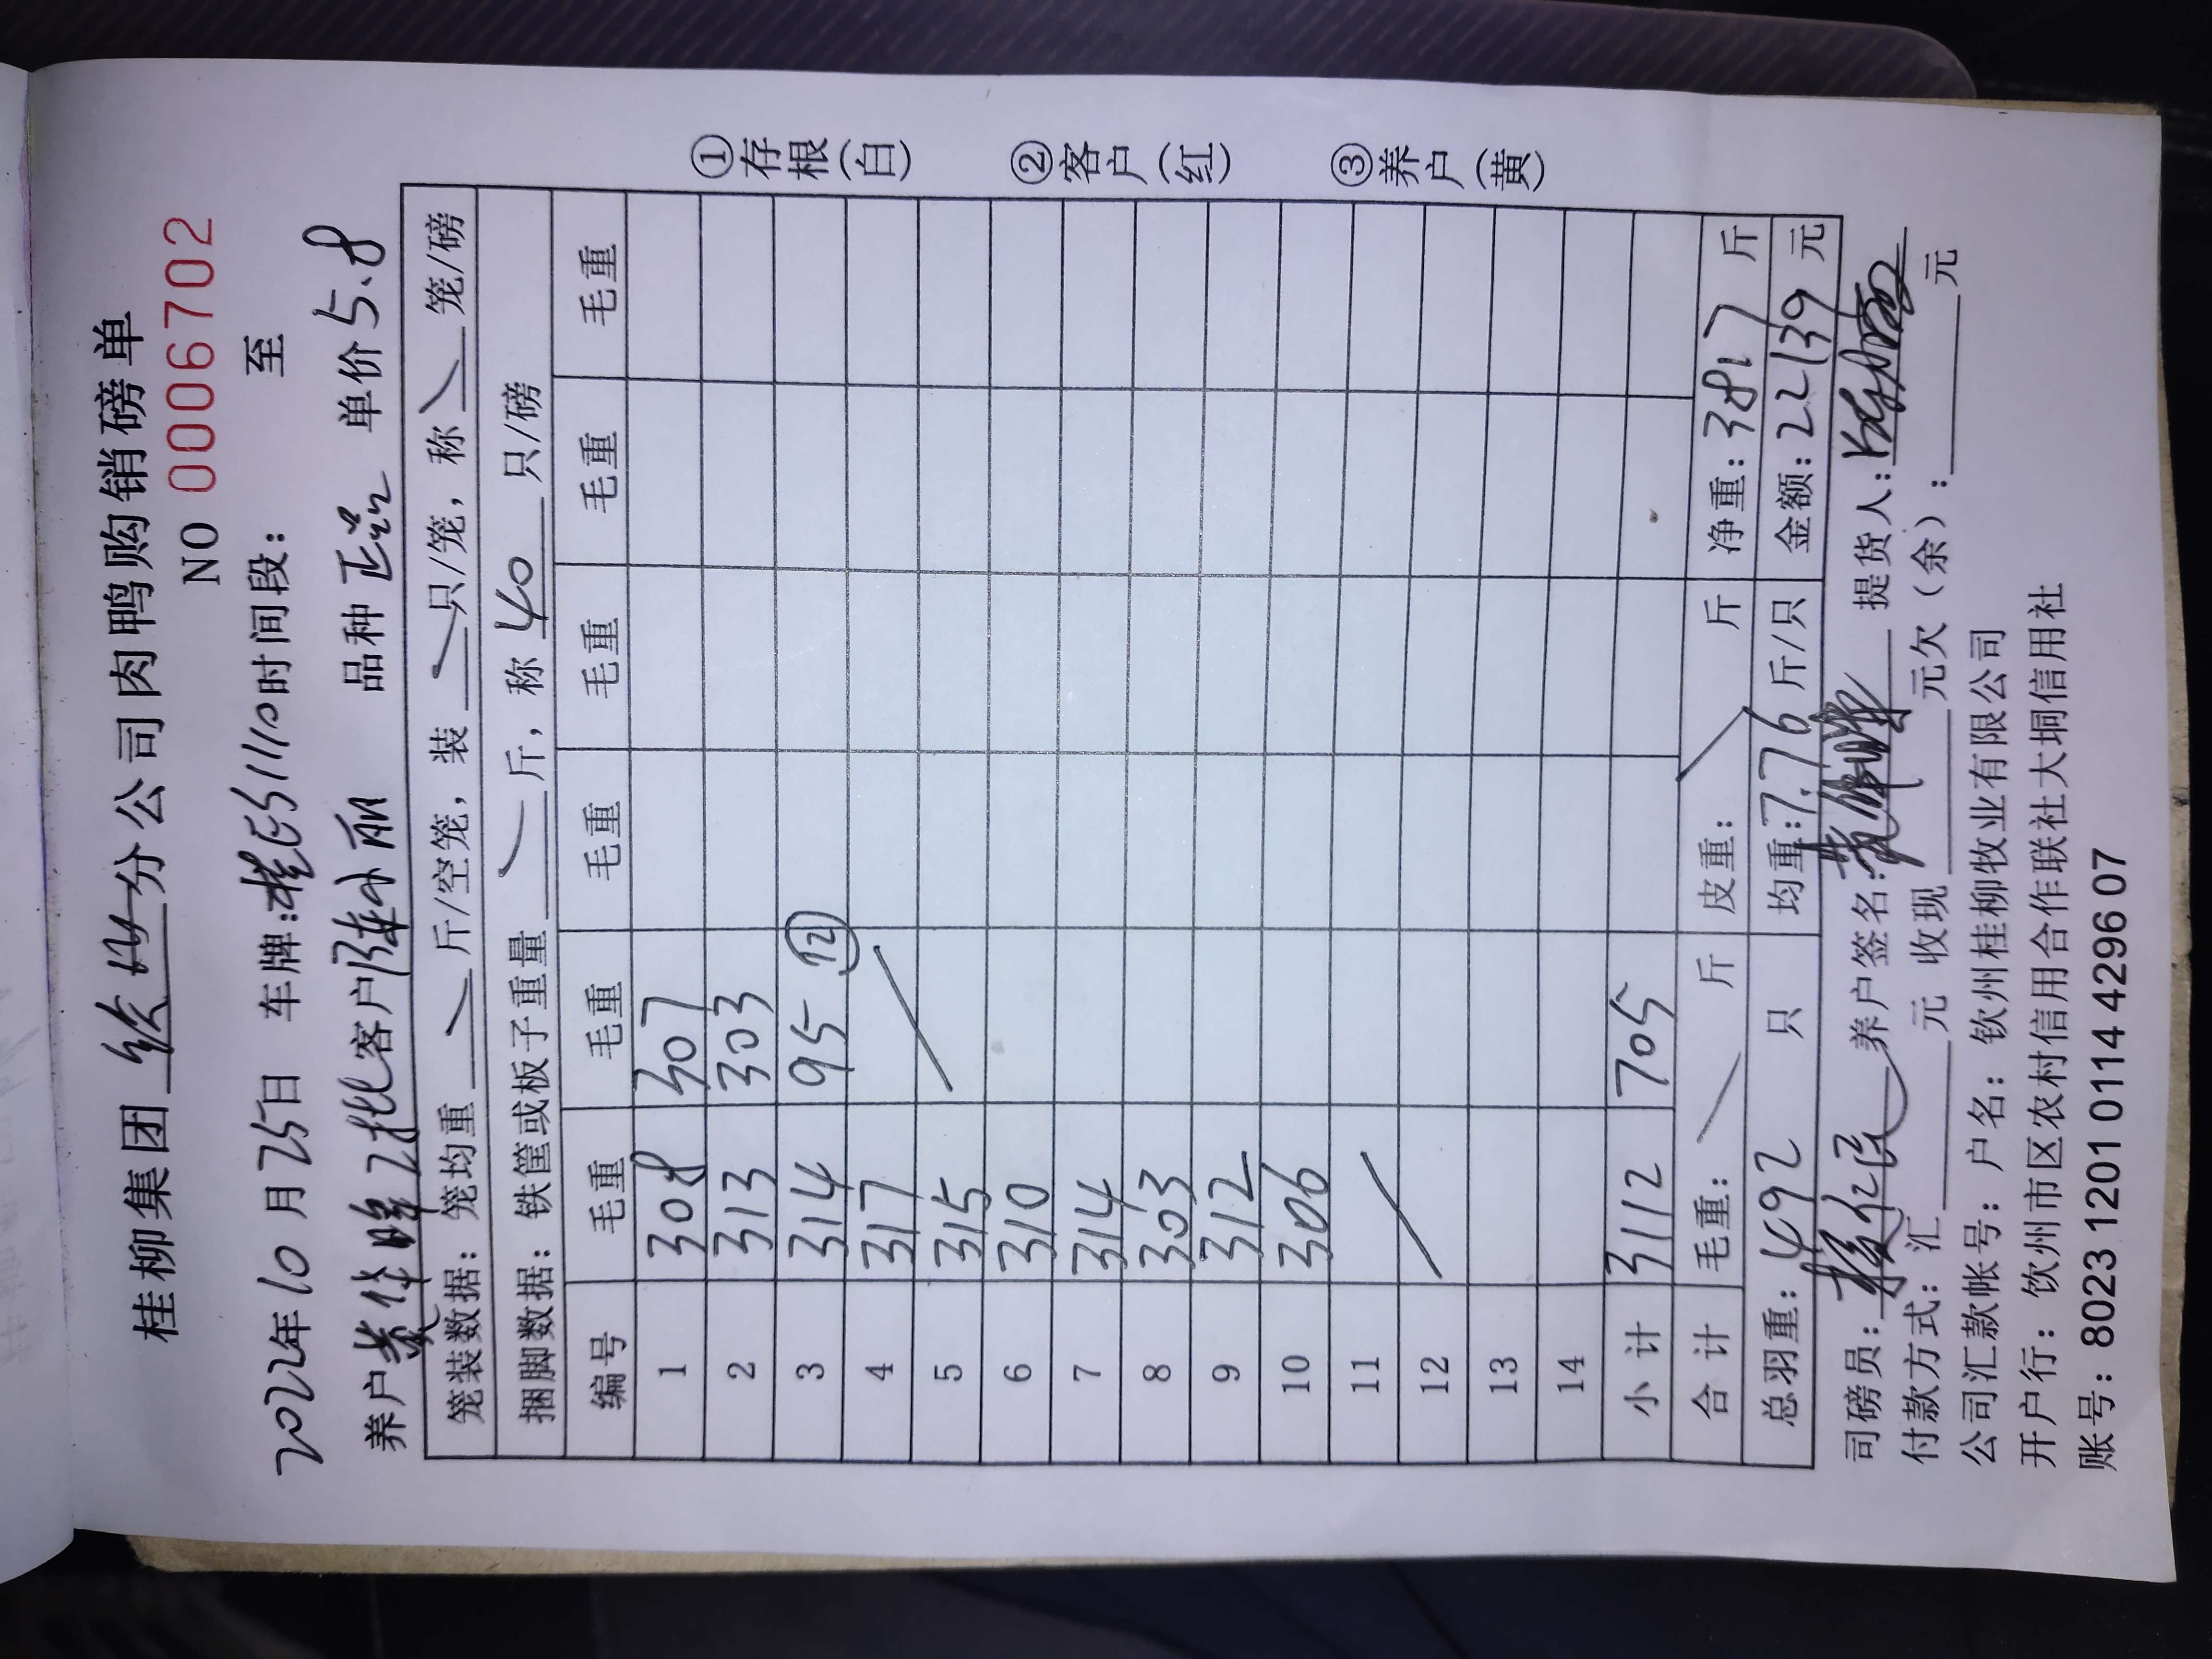 桂柳集团 分公司肉鸭购销磅单
NO 0006702
2022年10月25日 车牌:桂E51110时间段: 至
养户黄华晖2批客户陈小丽 品种 正品 单价5.8
笼装数据: 笼均重 斤/空笼, 装 只/笼, 称 笼/磅
捆脚数据: 铁筐或板子重量 斤, 称40 只/磅
编号 毛重 毛重 毛重 毛重 毛重 毛重
1 308 307
2 313 303
3 314 95 ⑫
4 317
5 315
6 310
7 314
8 303
9 312
10 306
11
12
13
14
小计 3112 705
合计 毛重: 斤 皮重: 斤 净重: 3817 斤
总羽重: 492 只 均重:7.76 斤/只 金额: 22139 元
司磅员: 养户签名:黄华晖 提货人:
付款方式: 汇 元 收现 元欠(余): 元
公司汇款帐号: 户名: 钦州桂柳牧业有限公司
开户行: 钦州市区农村信用合作联社大垌信用社
账号: 8023 1201 0114 4296 07
①存根(白)
②客户(红)
③养户(黄)